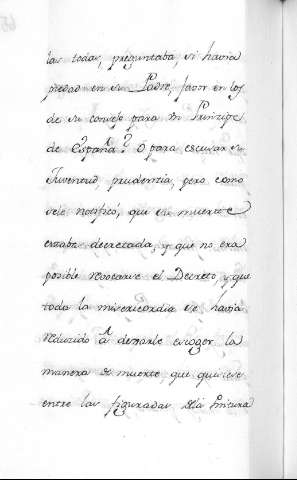 las todas, preguntaba, si havia
piedad en su Padre, favor en los
de su consejo para un Principe
de España? O para escusar su
Juventud, prudentia, pero como
sele notificó, que su muerte
estaba decretada, y que no era
posible revocarse el Decreto, y que
toda la misericordia se havia
reducido á dexarle escoger la
manera de muerte, que quisiese
entre las figuradas dela Pintura